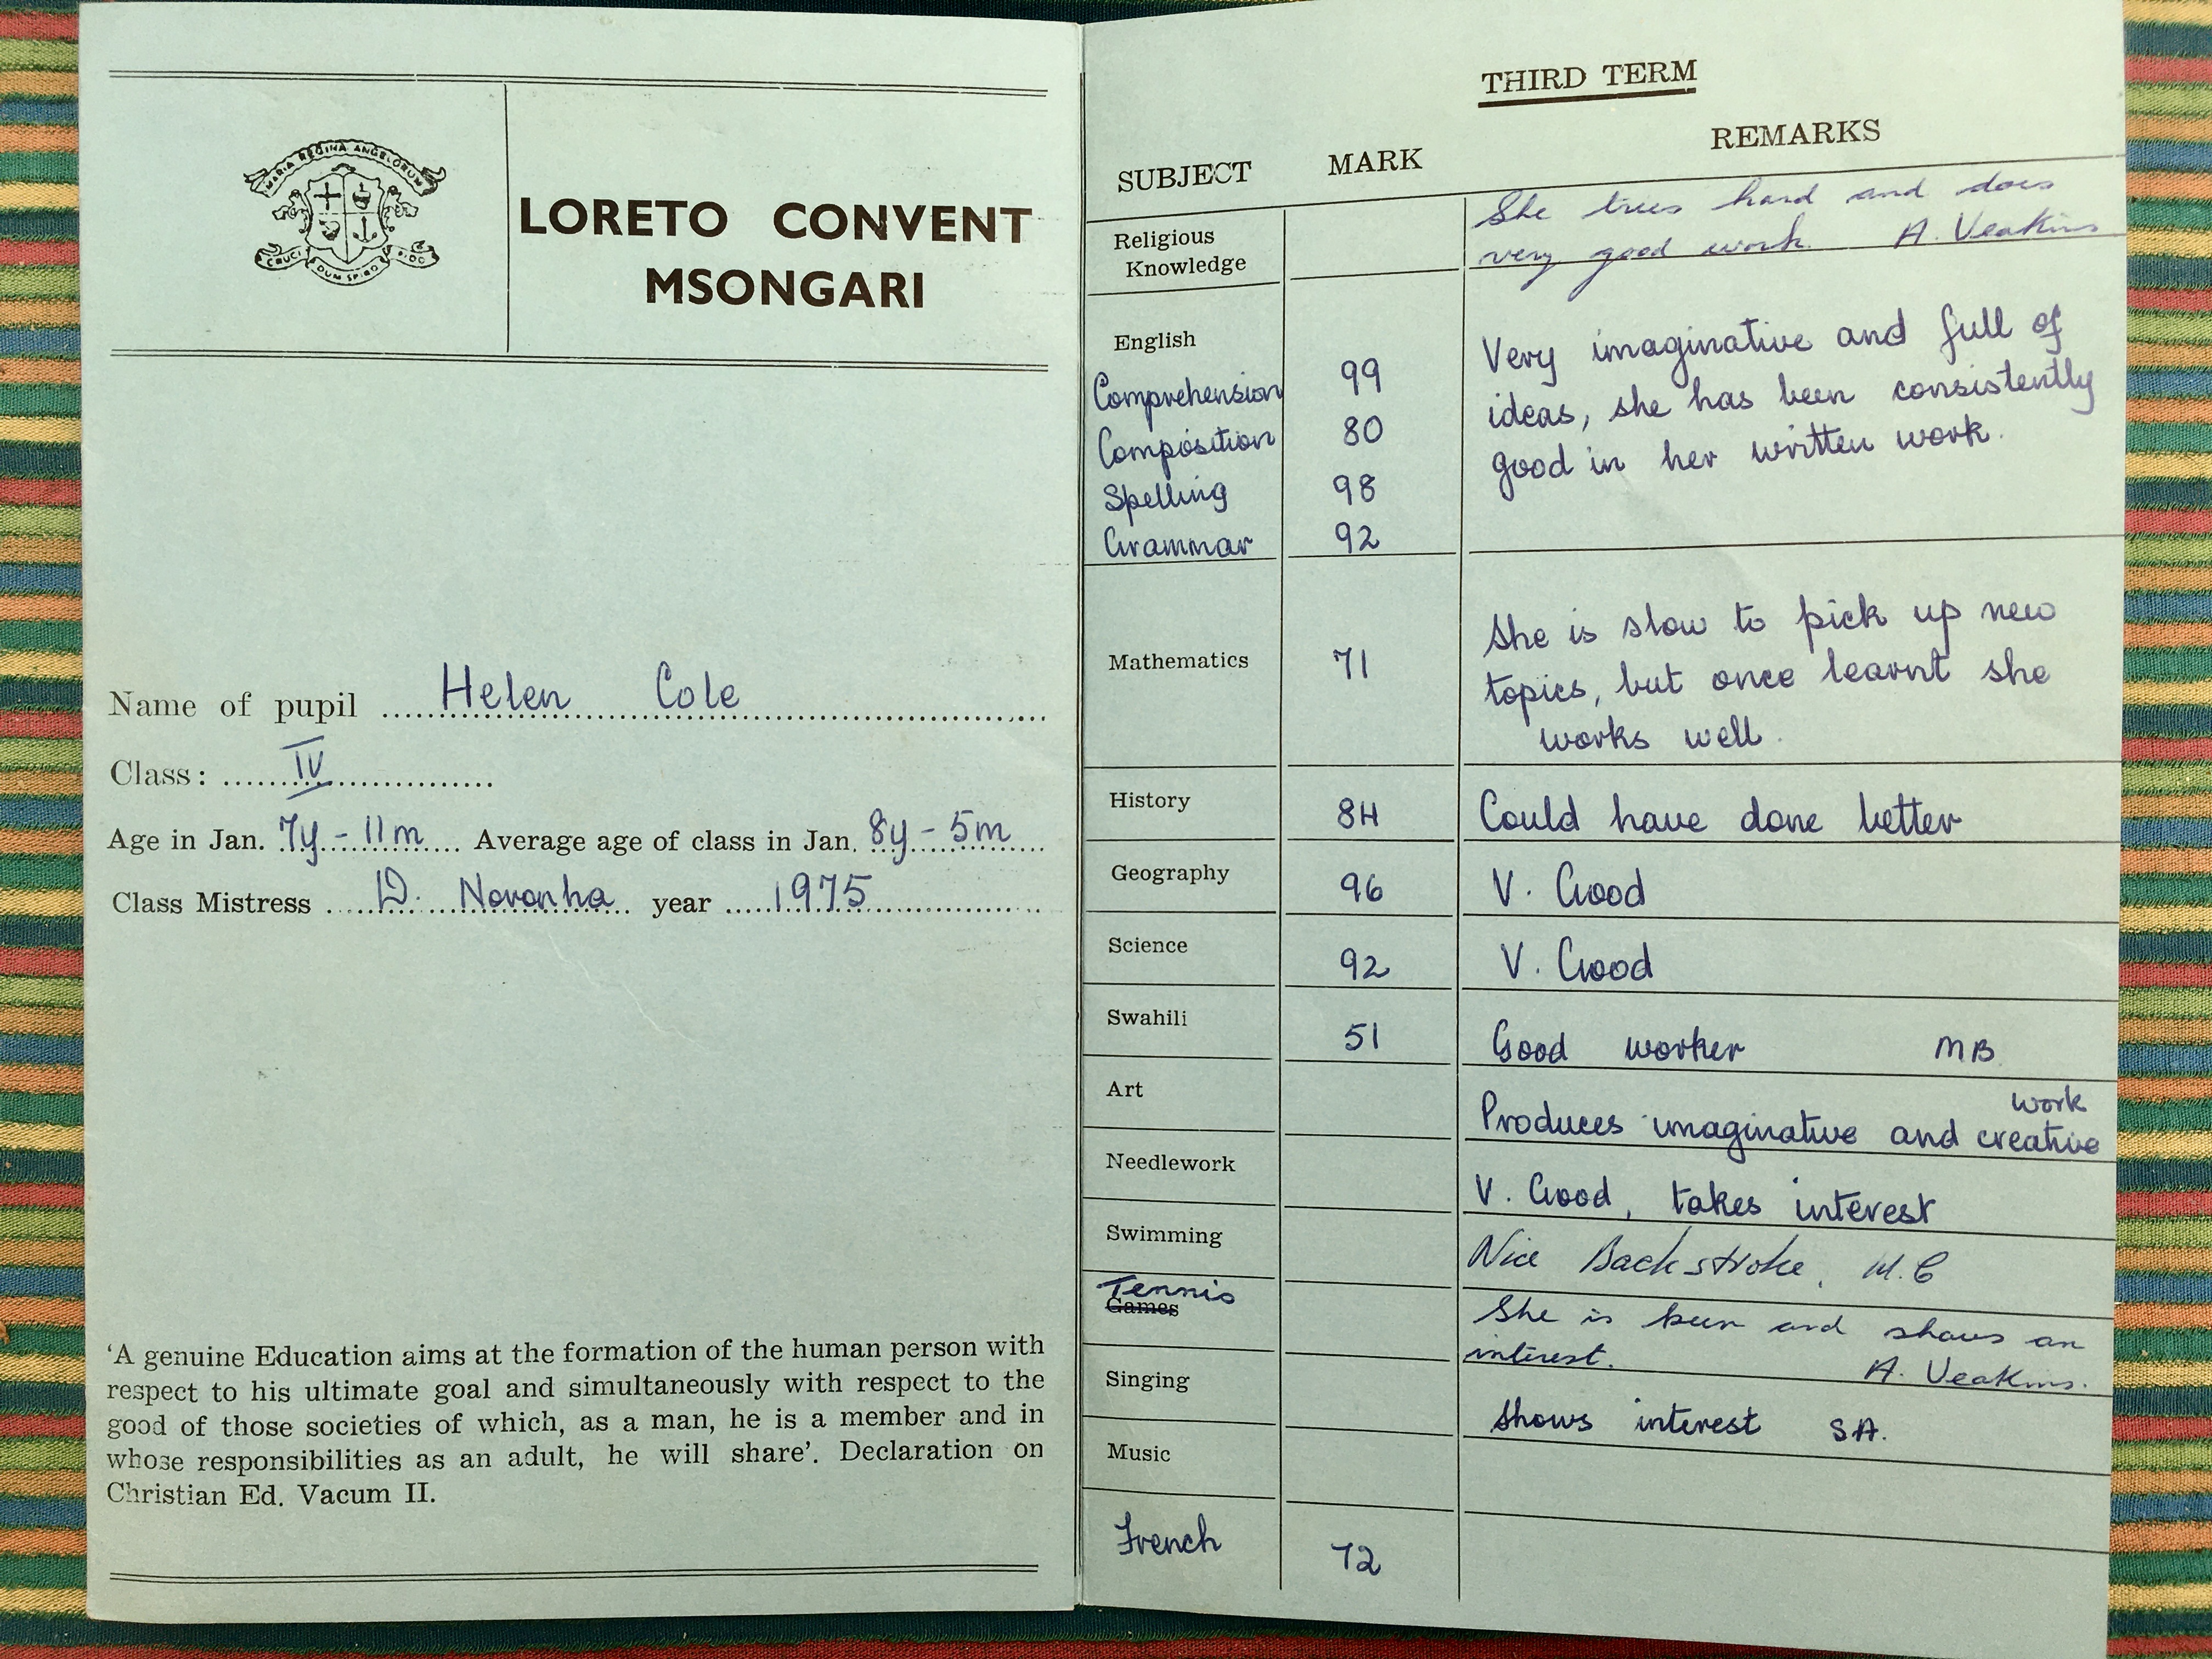 MARIA REGINA ANGELORUM
CRUCI DUM SPIRO FIDO
LORETO CONVENT
MSONGARI
Name of pupil Helen Cole
Class: IV
Age in Jan. 7y - 11m Average age of class in Jan. 8y - 5m
Class Mistress D. Noronha year 1975
'A genuine Education aims at the formation of the human person with
respect to his ultimate goal and simultaneously with respect to the
good of those societies of which, as a man, he is a member and in
whose responsibilities as an adult, he will share'. Declaration on
Christian Ed. Vacum II.
THIRD TERM
SUBJECT MARK REMARKS
Religious
Knowledge
She tries hard and does
very good work. A. Veakins
English
Comprehension 99
Composition 80
Spelling 98
Grammar 92
Very imaginative and full of
ideas, she has been consistently
good in her written work.
Mathematics 71
She is slow to pick up new
topics, but once learnt she
works well.
History 84 Could have done better
Geography 96 V. Good
Science 92 V. Good
Swahili 51 Good worker MB
Art
work
Produces imaginative and creative
Needlework V. Good, takes interest
Swimming Nice Backstroke. M.C
Tennis
Games
She is keen and shows an
interest. A. Veakins.
Singing Shows interest SA.
Music
French 72